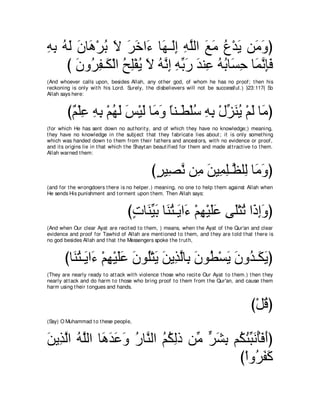 (وَمَن يَدْعُ مَعَ اللَّهِ إِلَـهَا ءَاخَرَ لاَ بُرْهَانَ لَهُ بِهِ
فَإِنَّمَا حِسَابُهُ عِندَ رَبِّهِ إِنَّهُ لاَ يُفْلِحُ الْكَـفِرُونَ )
(And whoever calls upon, besides Allah, any other god, of whom he has no proof; then his
reckoning is only with his Lord. Surely, the disbelievers will not be successful.) (23:117) So
Allah says here:
(مَا لَمْ يُنَزِّلْ بِهِ سُلْطَـناً وَمَا لَيْسَ لَهُمْ بِهِ عِلْمٌ)
(for which He has sent down no authority, and of which they have no knowledge;) meaning,
they have no knowledge in the subject that they fabricate lies about; it is only something
which was handed down to them from their fathers and ancestors, with no evidence or proof,
and its origins lie in that which the Shaytan beautified for them and made attractive to them.
Allah warned them:
(وَمَا لِلظَّـلِمِينَ مِن نَّصِيرٍ)
(and for the wrongdoers there is no helper.) meaning, no one to help them against Allah when
He sends His punishment and torment upon them. Then Allah says:
(وَإِذَا تُتْلَى عَلَيْهِمْ ءَايَـتُنَا بَيِّنَاتٍ)
(And when Our clear Ayat are recited to them, ) means, when the Ayat of the Qur'an and clear
evidence and proof for Tawhid of Allah are mentioned to them, and they are told that there is
no god besides Allah and that the Messengers spoke the truth,
(يَكَـدُونَ يَسْطُونَ بِالَّذِينَ يَتْلُونَ عَلَيْهِمْ ءَايَـتُنَا)
(They are nearly ready to attack with violence those who recite Our Ayat to them.) then they
nearly attack and do harm to those who bring proof to them from the Qur'an, and cause them
harm using their tongues and hands.
(قُلْ)
(Say) O Muhammad to these people,
(أَفَأُنَبِّئُكُم بِشَرٍّ مِّن ذلِكُمُ النَّارُ وَعَدَهَا اللَّهُ الَّذِينَ
كَفَرُواْ)